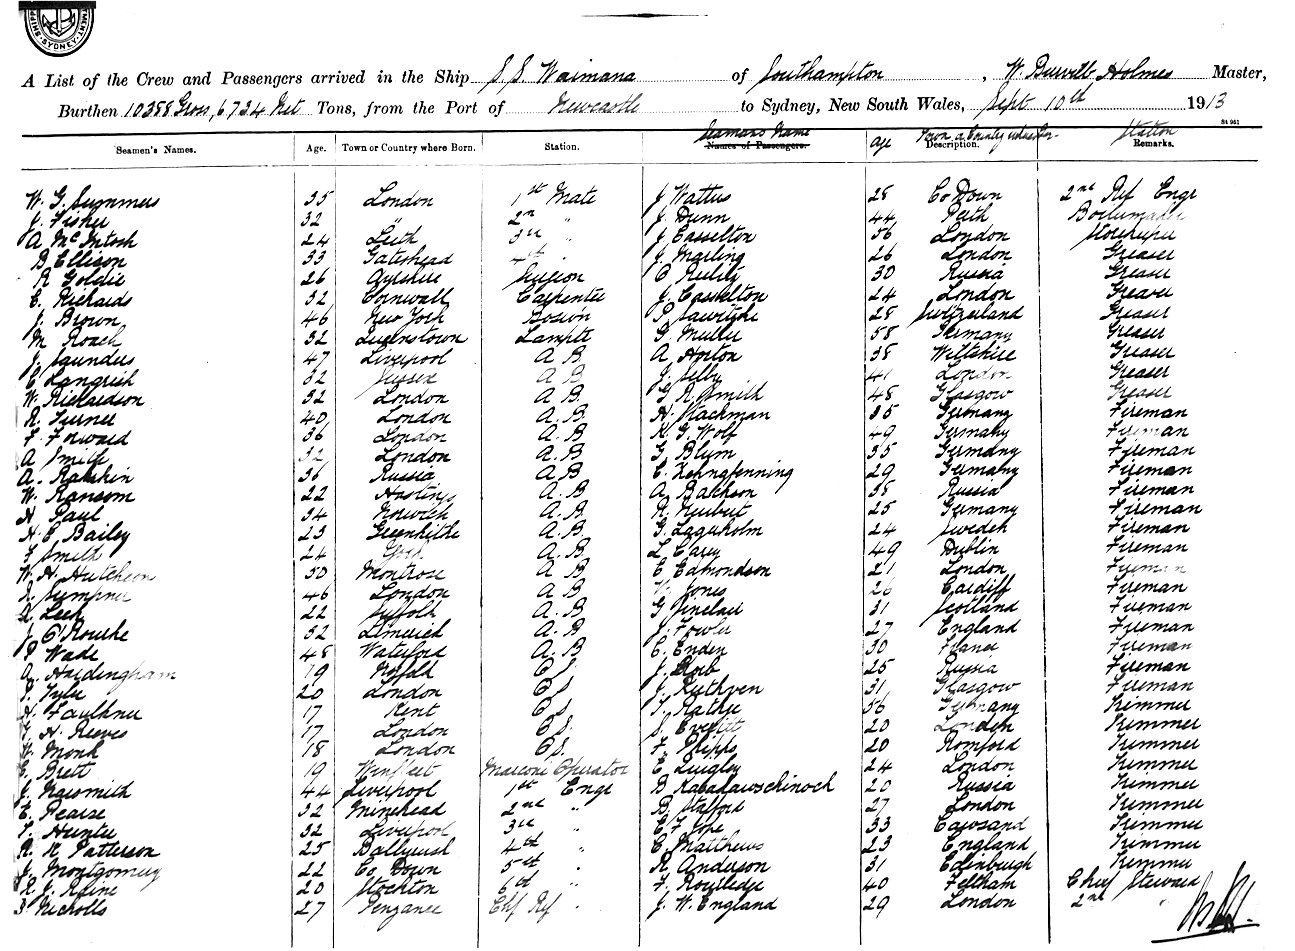 SHIPP MENT SYDNEY
A List of the Crew and Passengers arrived in the Ship S.S Waimana of Southampton, W. Burvill Holmes Master,
Burthen 10388 Gross, 6734 Net Tons, from the Port of Newcastle to Sydney, New South Wales, Sept 10th 1913
St 961
Seamen's Names. Age. Town or Country where Born. Station. Seamans Name Names of Passengers. age Town or Country where Description. Station Remarks.
W. G. Summers 35 London 1st Mate J Watters 28 Co Down 2nd Ref Engr
J. Fisher 32 " 2n " J. Dunn 44 Perth Boilermaker
A Mc Intosh 24 Leith 3rd " J Casselton 56 London Storekeeper
B Ellison 33 Gateshead 4th " J Marling 26 London Greaser
R Goldie 26 Ayrshire Surgeon 30 Russia Greaser
C. Richards 32 Cornwall Carpenter J. Casselton 24 London Greaser
J. Brown 46 New York Bosun 28 Switzerland Greaser
M Roach 32 Queenstown Lamptr G Muller 58 Germany Greaser
J. Saunders 47 Liverpool A B A Horton 38 Wiltshire Greaser
C Langrish 32 Sussex A B J. Selby 41 London Greaser
W. Richardson 32 London A B. G R Smith 48 Glasgow Greaser
R. Turner 40 London A. B. H. Stackman 35 Germany Fireman
F Forward 36 London A. B K. G. Wolf 49 Germany Fireman
A Smith 32 London A. B G. Blum 35 Germany Fireman
A. Rakskin 36 Russia A B 29 Germany Fireman
W. Ransom 22 Hastings A. B A Bakkson 38 Russia Fireman
H Paul 34 Norwich A. B. R Neubert 25 Germany Fireman
H. E Bailey 23 Greenhithe A. B G. Lagerholm 24 Sweden Fireman
F Smith 24 A. B L Carey 49 Dublin Fireman
W. H. Hutcheon 50 Montrose A B E Edmondson 21 London Fireman
Sumpner 46 London A B Jones 26 Cardiff Fireman
A. Leek 22 Suffolk A. B G Sinclair 31 Scotland Fireman
J O'Rourke 32 Limerick A. B J. Fowler 27 England Fireman
P Wade 48 Waterford A. B C. Enden 30 France Fireman
A. Hardingham 19 Norfolk O S. J. Rob 25 Russia Fireman
J Tyler 20 London O S J. Ruthven 31 Glasgow Fireman
H. Faulkner 17 Kent O S Rathie 56 Germany Trimmer
H. Reeves 17 London O S. S. Everitt 20 London Trimmer
Monk 18 London O S. F. Phipps 20 Romford Trimmer
Brett 19 Marconi Operator E Quigley 24 London Trimmer
J. Naismith 44 Liverpool 1st Engr B Kabadawschinock 20 Russia Trimmer
E. Pearse 32 Minehead 2nd " B. Stafford 27 London Trimmer
T. Hunter 32 Liverpool 3rd " C F Pope 33 Cawsand Trimmer
R. N. Patterson 25 4th " C Matthews 23 England Trimmer
J. Montgomery 22 Co Down 5th " R Anderson 31 Edinburgh Trimmer
R. J. Raine 20 Stockton 6th " F. Routledge 40 Feltham Chief Steward
J. Nicholls 27 Penzance Chf Ref " J. W. England 29 London 2nd "